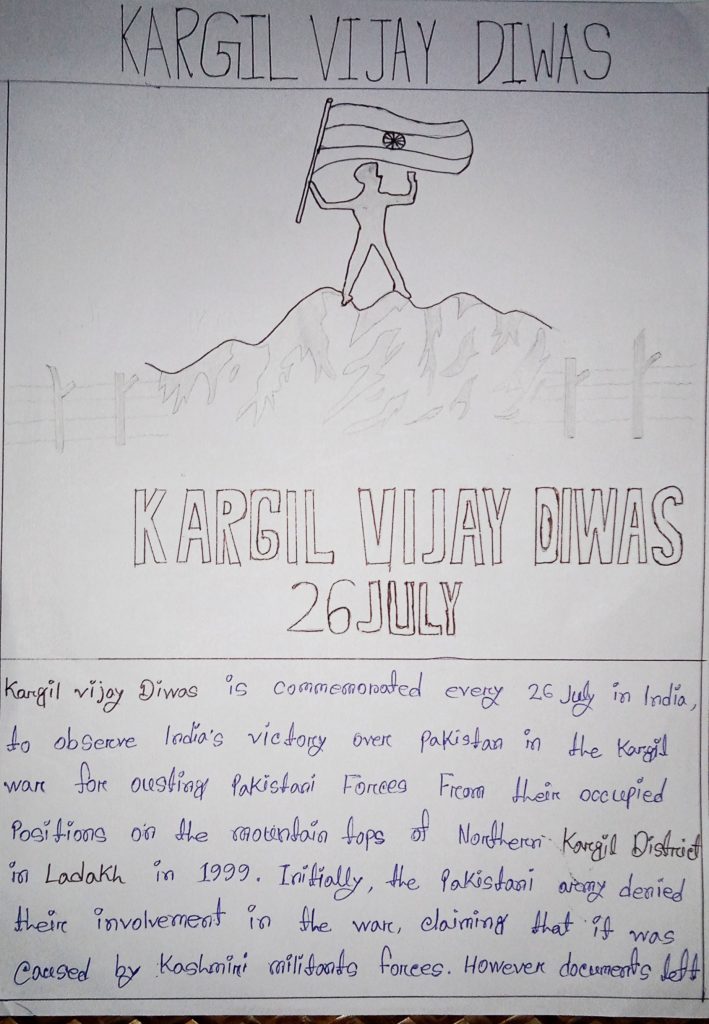 KARGIL VIJAY DIWAS
KARGIL VIJAY DIWAS
26 JULY
Kargil vijay Diwas is commemorated every 26 July in India,
to observe India's victory over Pakistan in the Kargil
war for ousting Pakistani Forces From their occupied
Positions on the mountain tops of Northern Kargil District
in Ladakh in 1999. Initially, the Pakistani army denied
their involvement in the war, claiming that it was
Caused by Kashmiri militants forces. However documents left